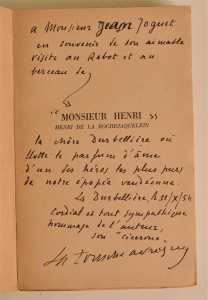 a Monsieur Jean Joguet
en souvenir de son aimable
visite au Rabot et au
berceau de
"MONSIEUR HENRI"
HENRI DE LA ROCHEJAQUELEIN
la chère Durbelière où
flotte le parfum d'âme
d'un des héros les plus purs
de notre épopée vendéenne.
La Durbelière, /X/54
Cordial et tout sympathique
hommage de l'auteur,
son "cicerone".